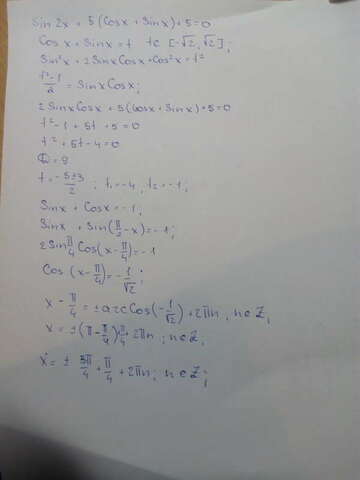 Sin 2x + 5 (Cosx + Sinx) + 5 = 0
Cosx + Sinx = t   t∈ [-√2, √2];
Sin²x + 2SinxCosx + Cos²x = t²
(t²-1)/2 = SinxCosx;
2SinxCosx + 5(Cosx + Sinx) + 5 = 0
t² - 1 + 5t + 5 = 0
t² + 5t - 4 = 0
D = 9
t = (-5±3)/2 ; t₁ = -4, t₂ = -1;
Sinx + Cosx = -1;
Sinx + Sin(π/2 - x) = -1;
2Sin π/4 Cos(x - π/4) = -1
Cos (x - π/4) = -1/√2;
x - π/4 = ± arcCos(-1/√2) + 2πn, n∈Z,
x = ±(π - π/4) + π/4 + 2πn, n∈Z,
x = ± 3π/4 + π/4 + 2πn; n∈Z;